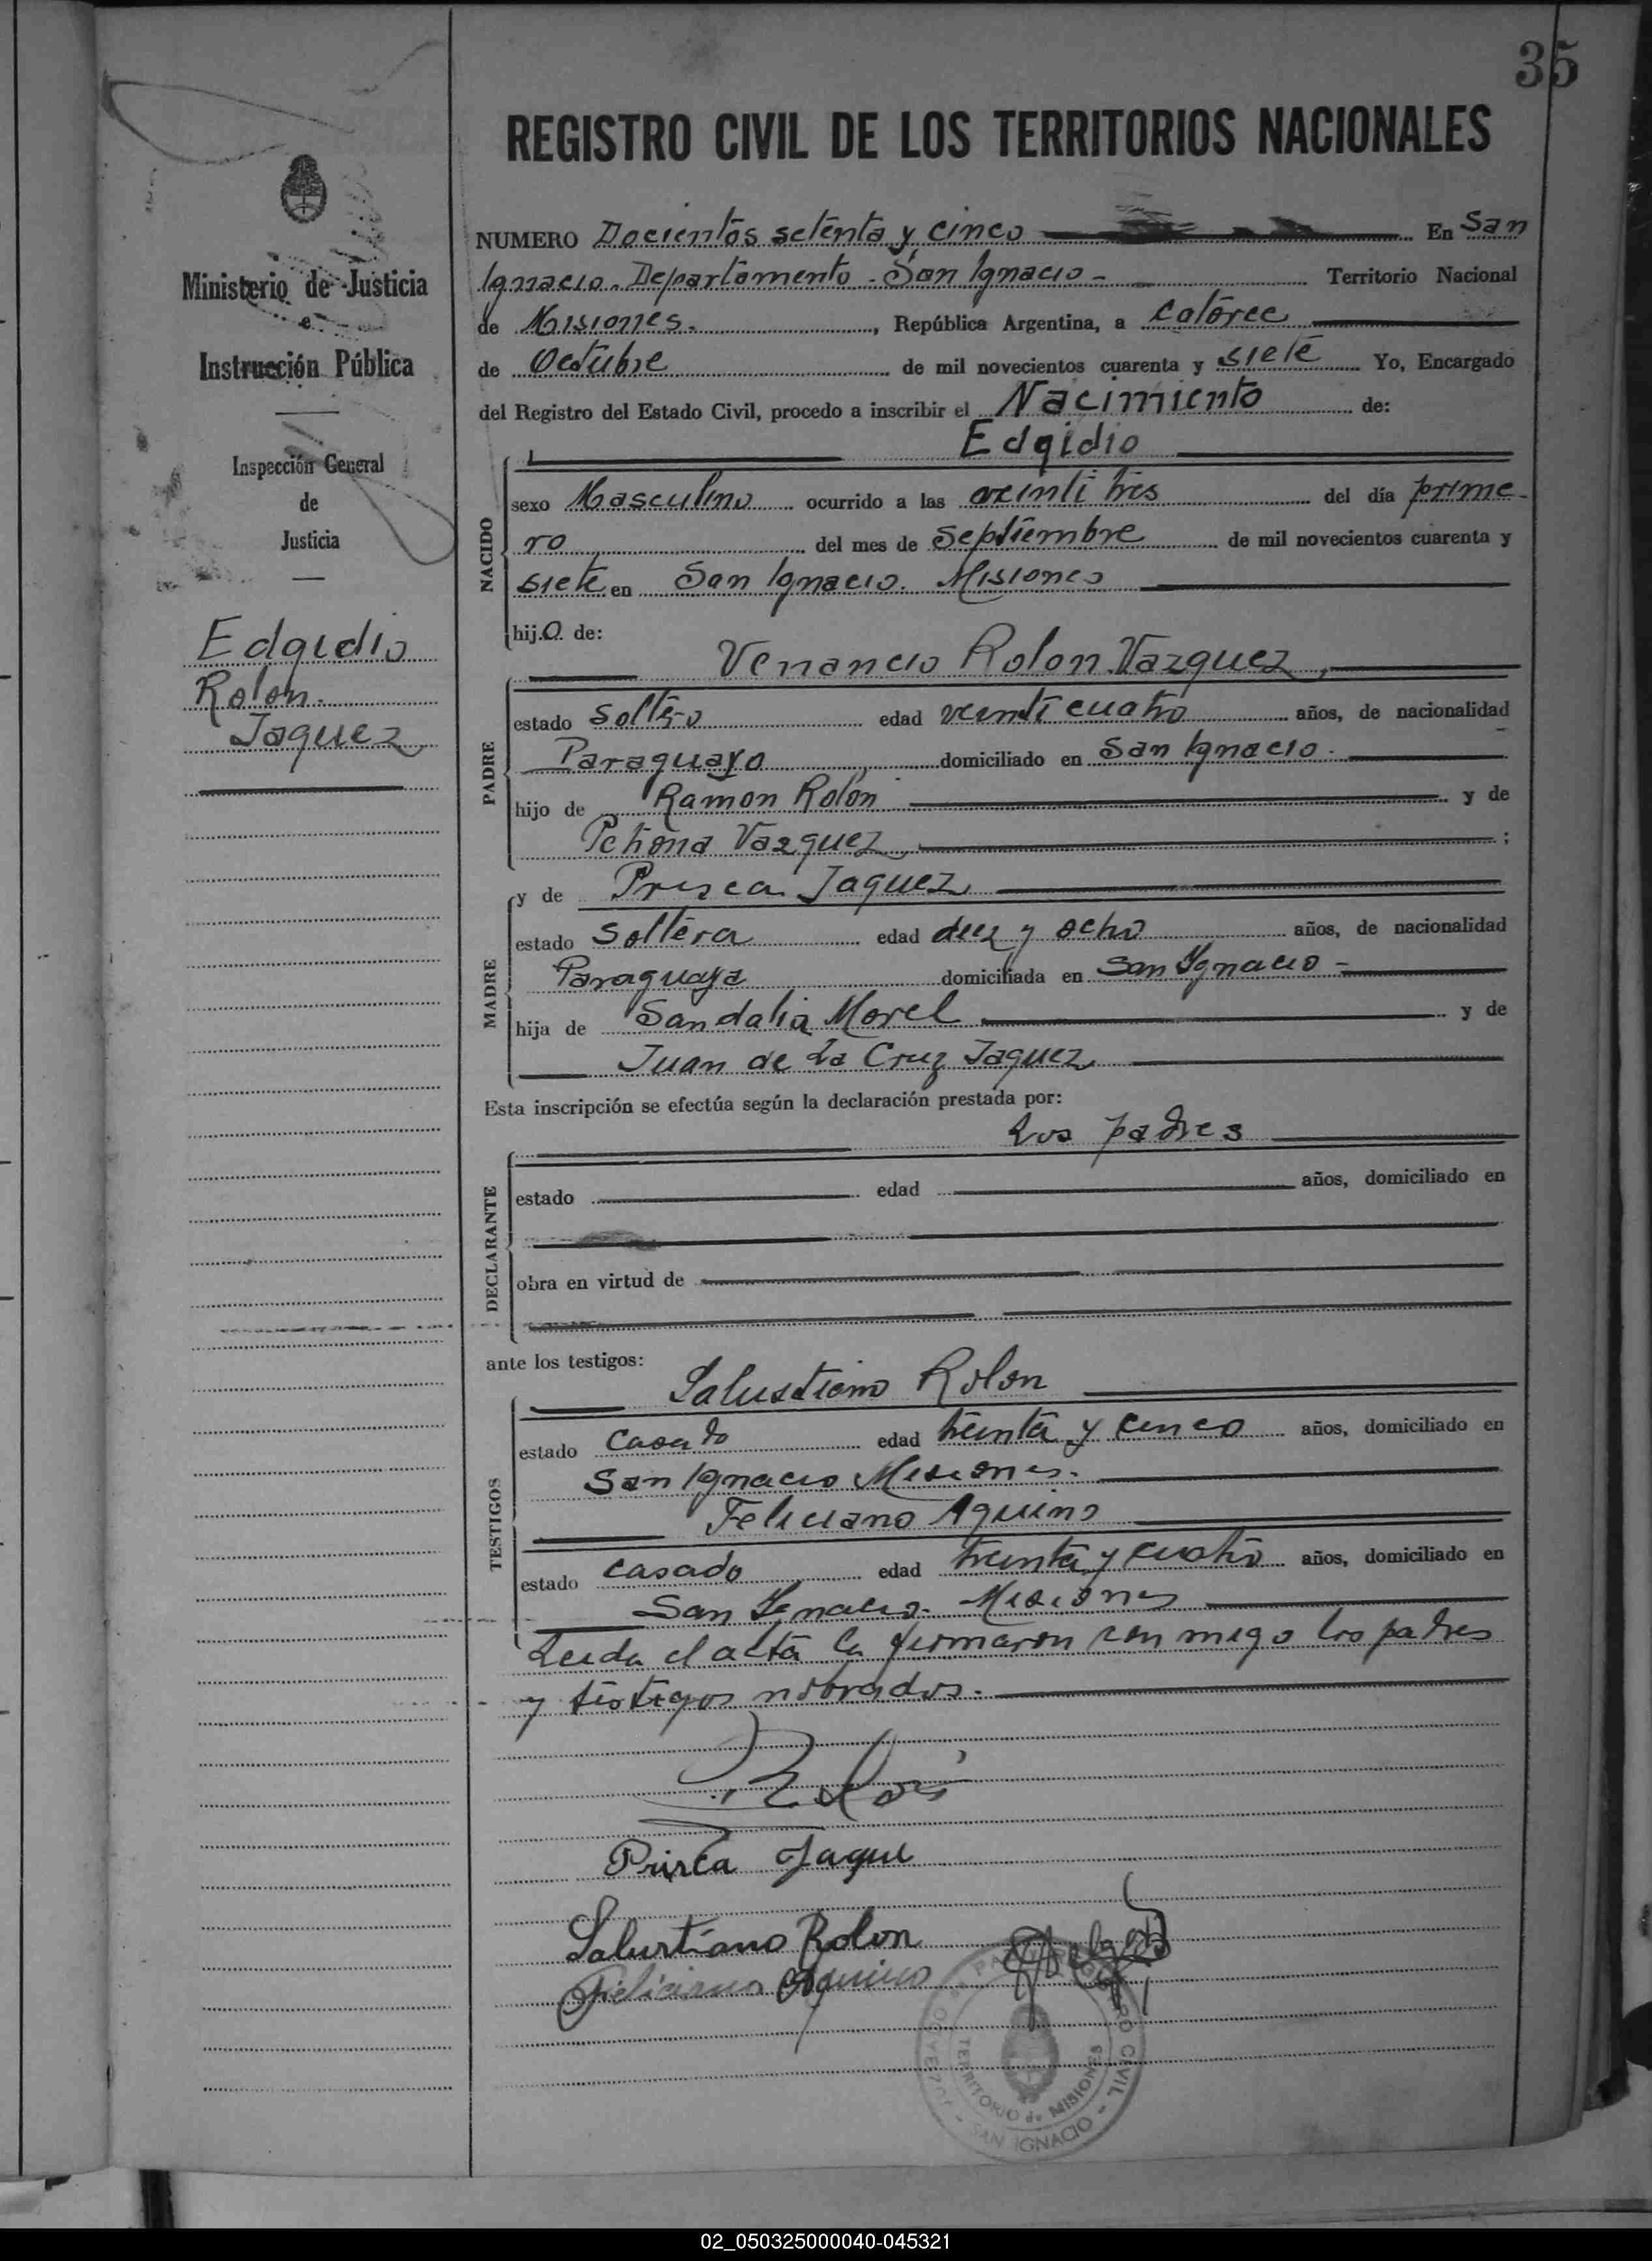 35
REGISTRO CIVIL DE LOS TERRITORIOS NACIONALES
Ministerio de Justicia
e
Instrucción Pública
Inspección General
de
Justicia
Edgidio
Rolon
Jaquez
NUMERO Docientos setenta y cinco En San
Ignacio. Departamento - San Ignacio - Territorio Nacional
de Misiones. , República Argentina, a catorce
de Octubre de mil novecientos cuarenta y siete Yo, Encargado
del Registro del Estado Civil, procedo a inscribir el Nacimiento de:
Edgidio
NACIDO
sexo Masculino ocurrido a las veinti tres del día prime-
ro del mes de Septiembre de mil novecientos cuarenta y
siete en San Ignacio. Misiones
hijo de:
Venancio Rolon Vazquez,
PADRE
estado soltero edad veinti cuatro años, de nacionalidad
Paraguayo domiciliado en San Ignacio.
hijo de Ramon Rolon y de
Petrona Vazquez ;
MADRE
y de Prisca Jaquez
estado soltera edad diez y ocho años, de nacionalidad
Paraguaya domiciliada en San Ignacio -
hija de Sandalia Morel y de
Juan de La Cruz Jaquez
Esta inscripción se efectúa según la declaración prestada por:
Los padres
DECLARANTE
estado edad años, domiciliado en
obra en virtud de
ante los testigos:
Salustiano Rolon
TESTIGOS
estado casado edad treinta y cinco años, domiciliado en
San Ignacio Misiones.
Feliciano Aquino
estado casado edad treinta y cuatro años, domiciliado en
San Ignacio. Misiones
Leida el acta la firmaron con migo los padres
y testigos nobrados.
Rolon
Prisca Jaque
Salustiano Rolon
Feliciano Aquino
REGISTRO CIVIL
TERRITORIO de MISIONES
SAN IGNACIO
02_050325000040-045321